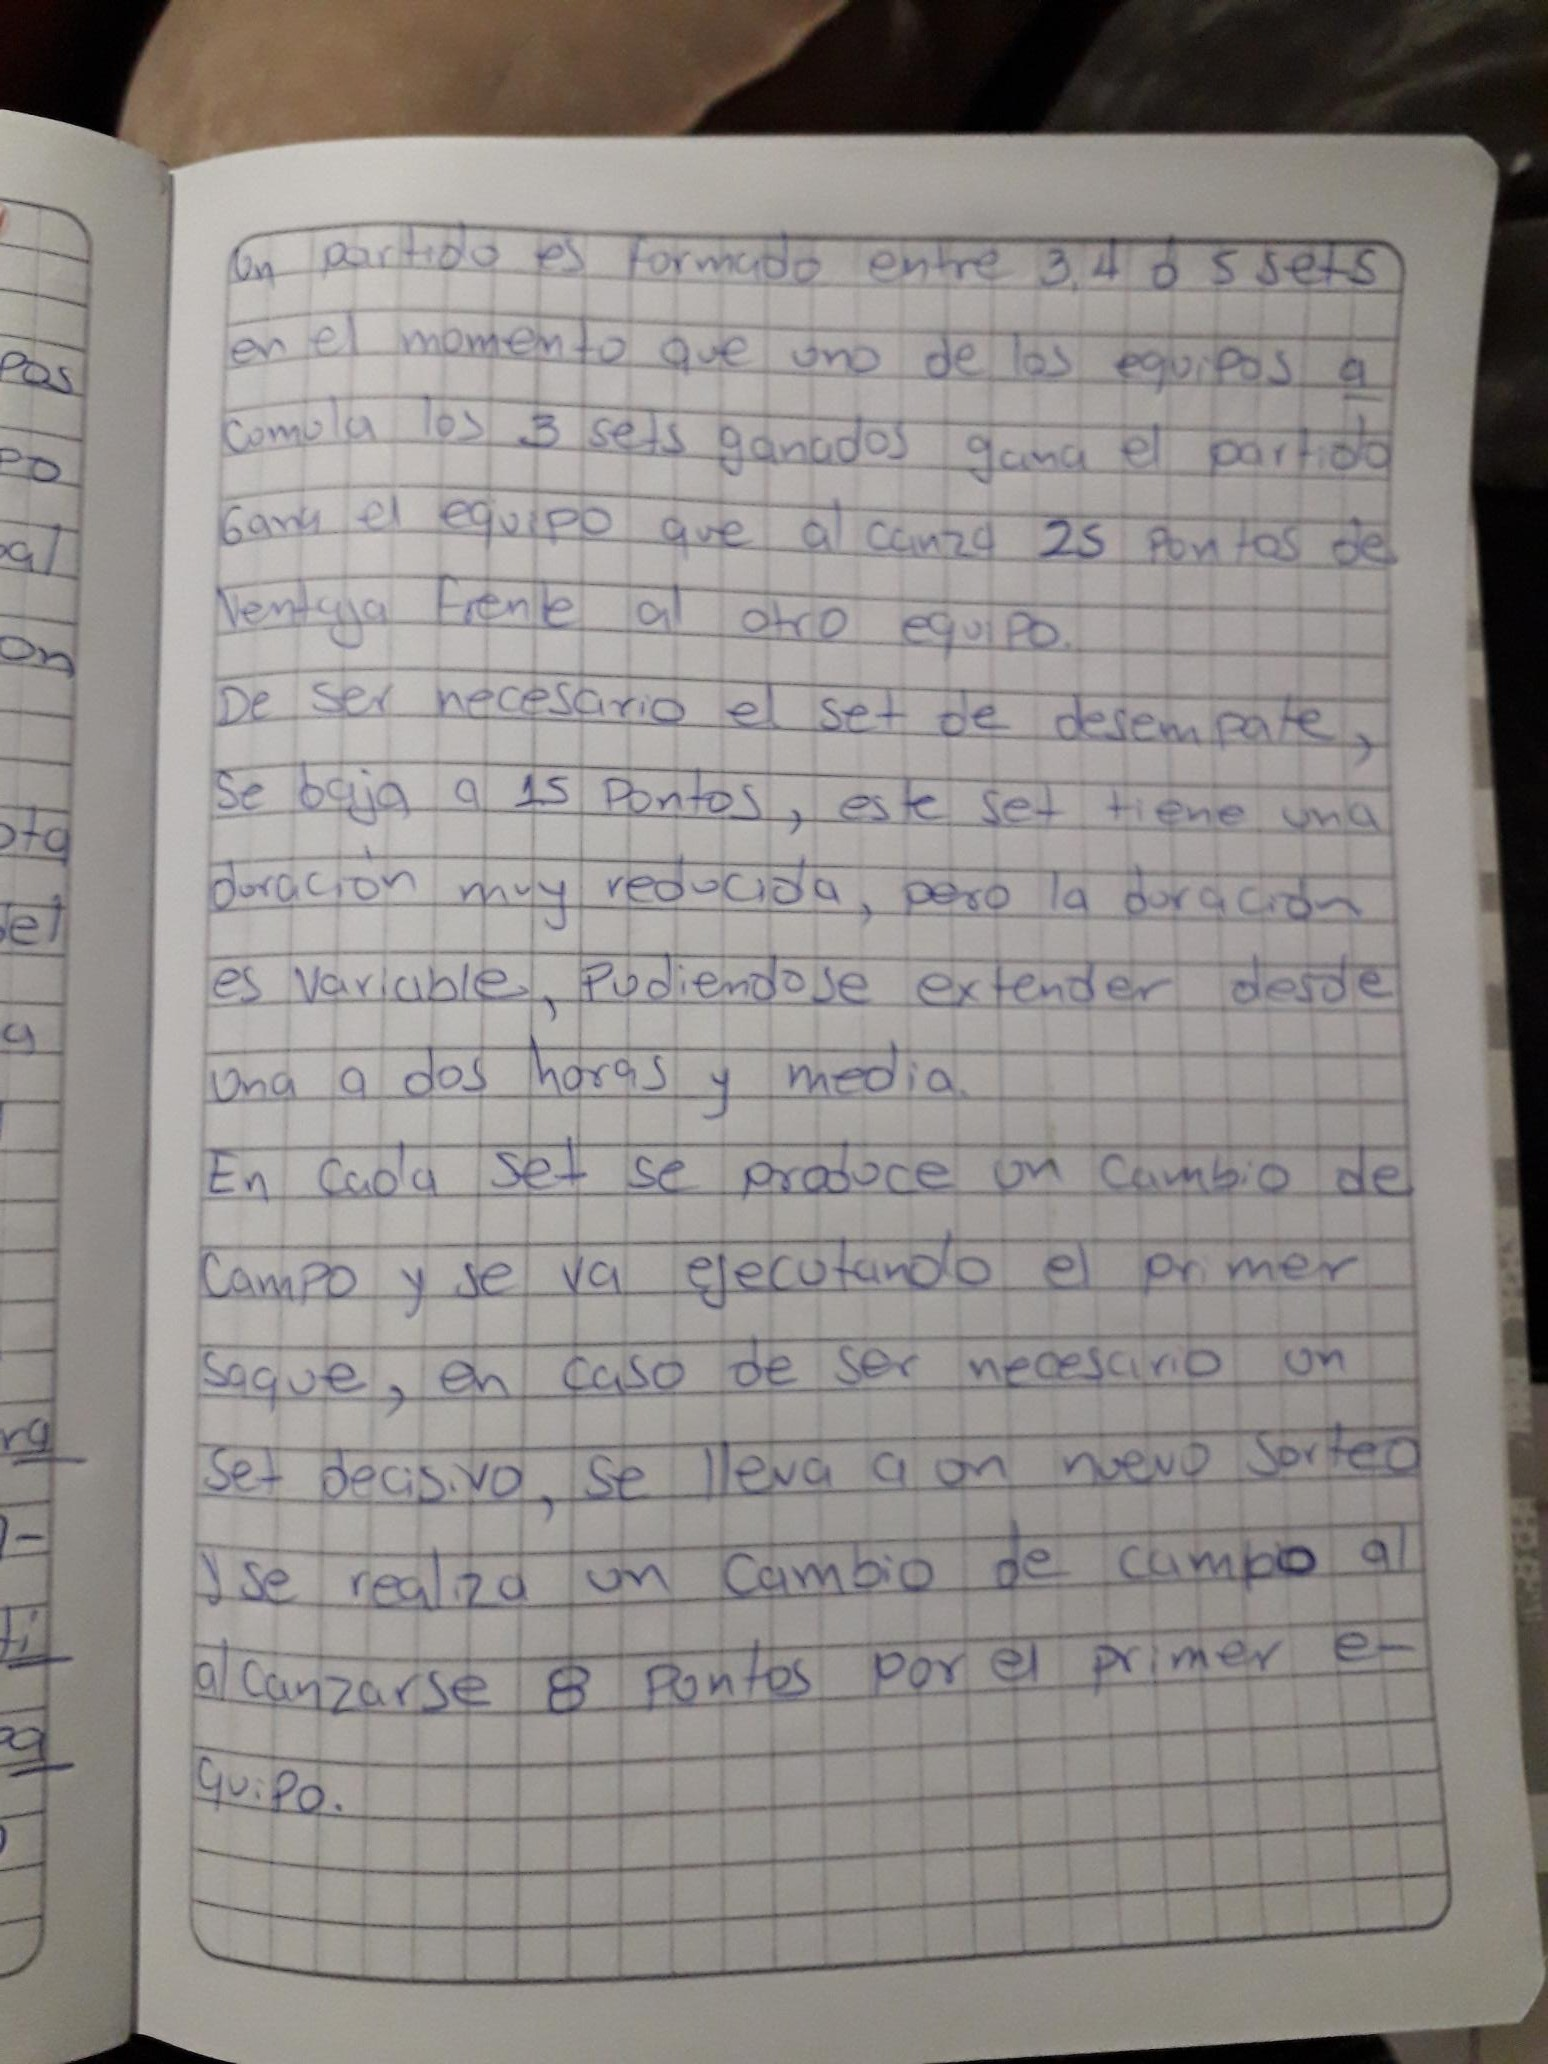 pas
po
pal
on
ota
set
a
ra
n-
ti
pa
Un partido es formado entre 3,4 ó 5 sets
en el momento que uno de los equipos a
cumula los 3 sets ganados gana el partido
Gana el equipo que alcanza 25 puntos de
ventaja frente al otro equipo.
De ser necesario el set de desempate,
se baja a 15 puntos, este set tiene una
duración muy reducida, pero la duración
es variable, pudiendose extender desde
una a dos horas y media.
En cada set se produce un cambio de
campo y se va ejecutando el primer
saque, en caso de ser necesario un
set decisivo, se lleva a un nuevo sorteo
y se realiza un cambio de campo al
alcanzarse 8 puntos por el primer e-
quipo.